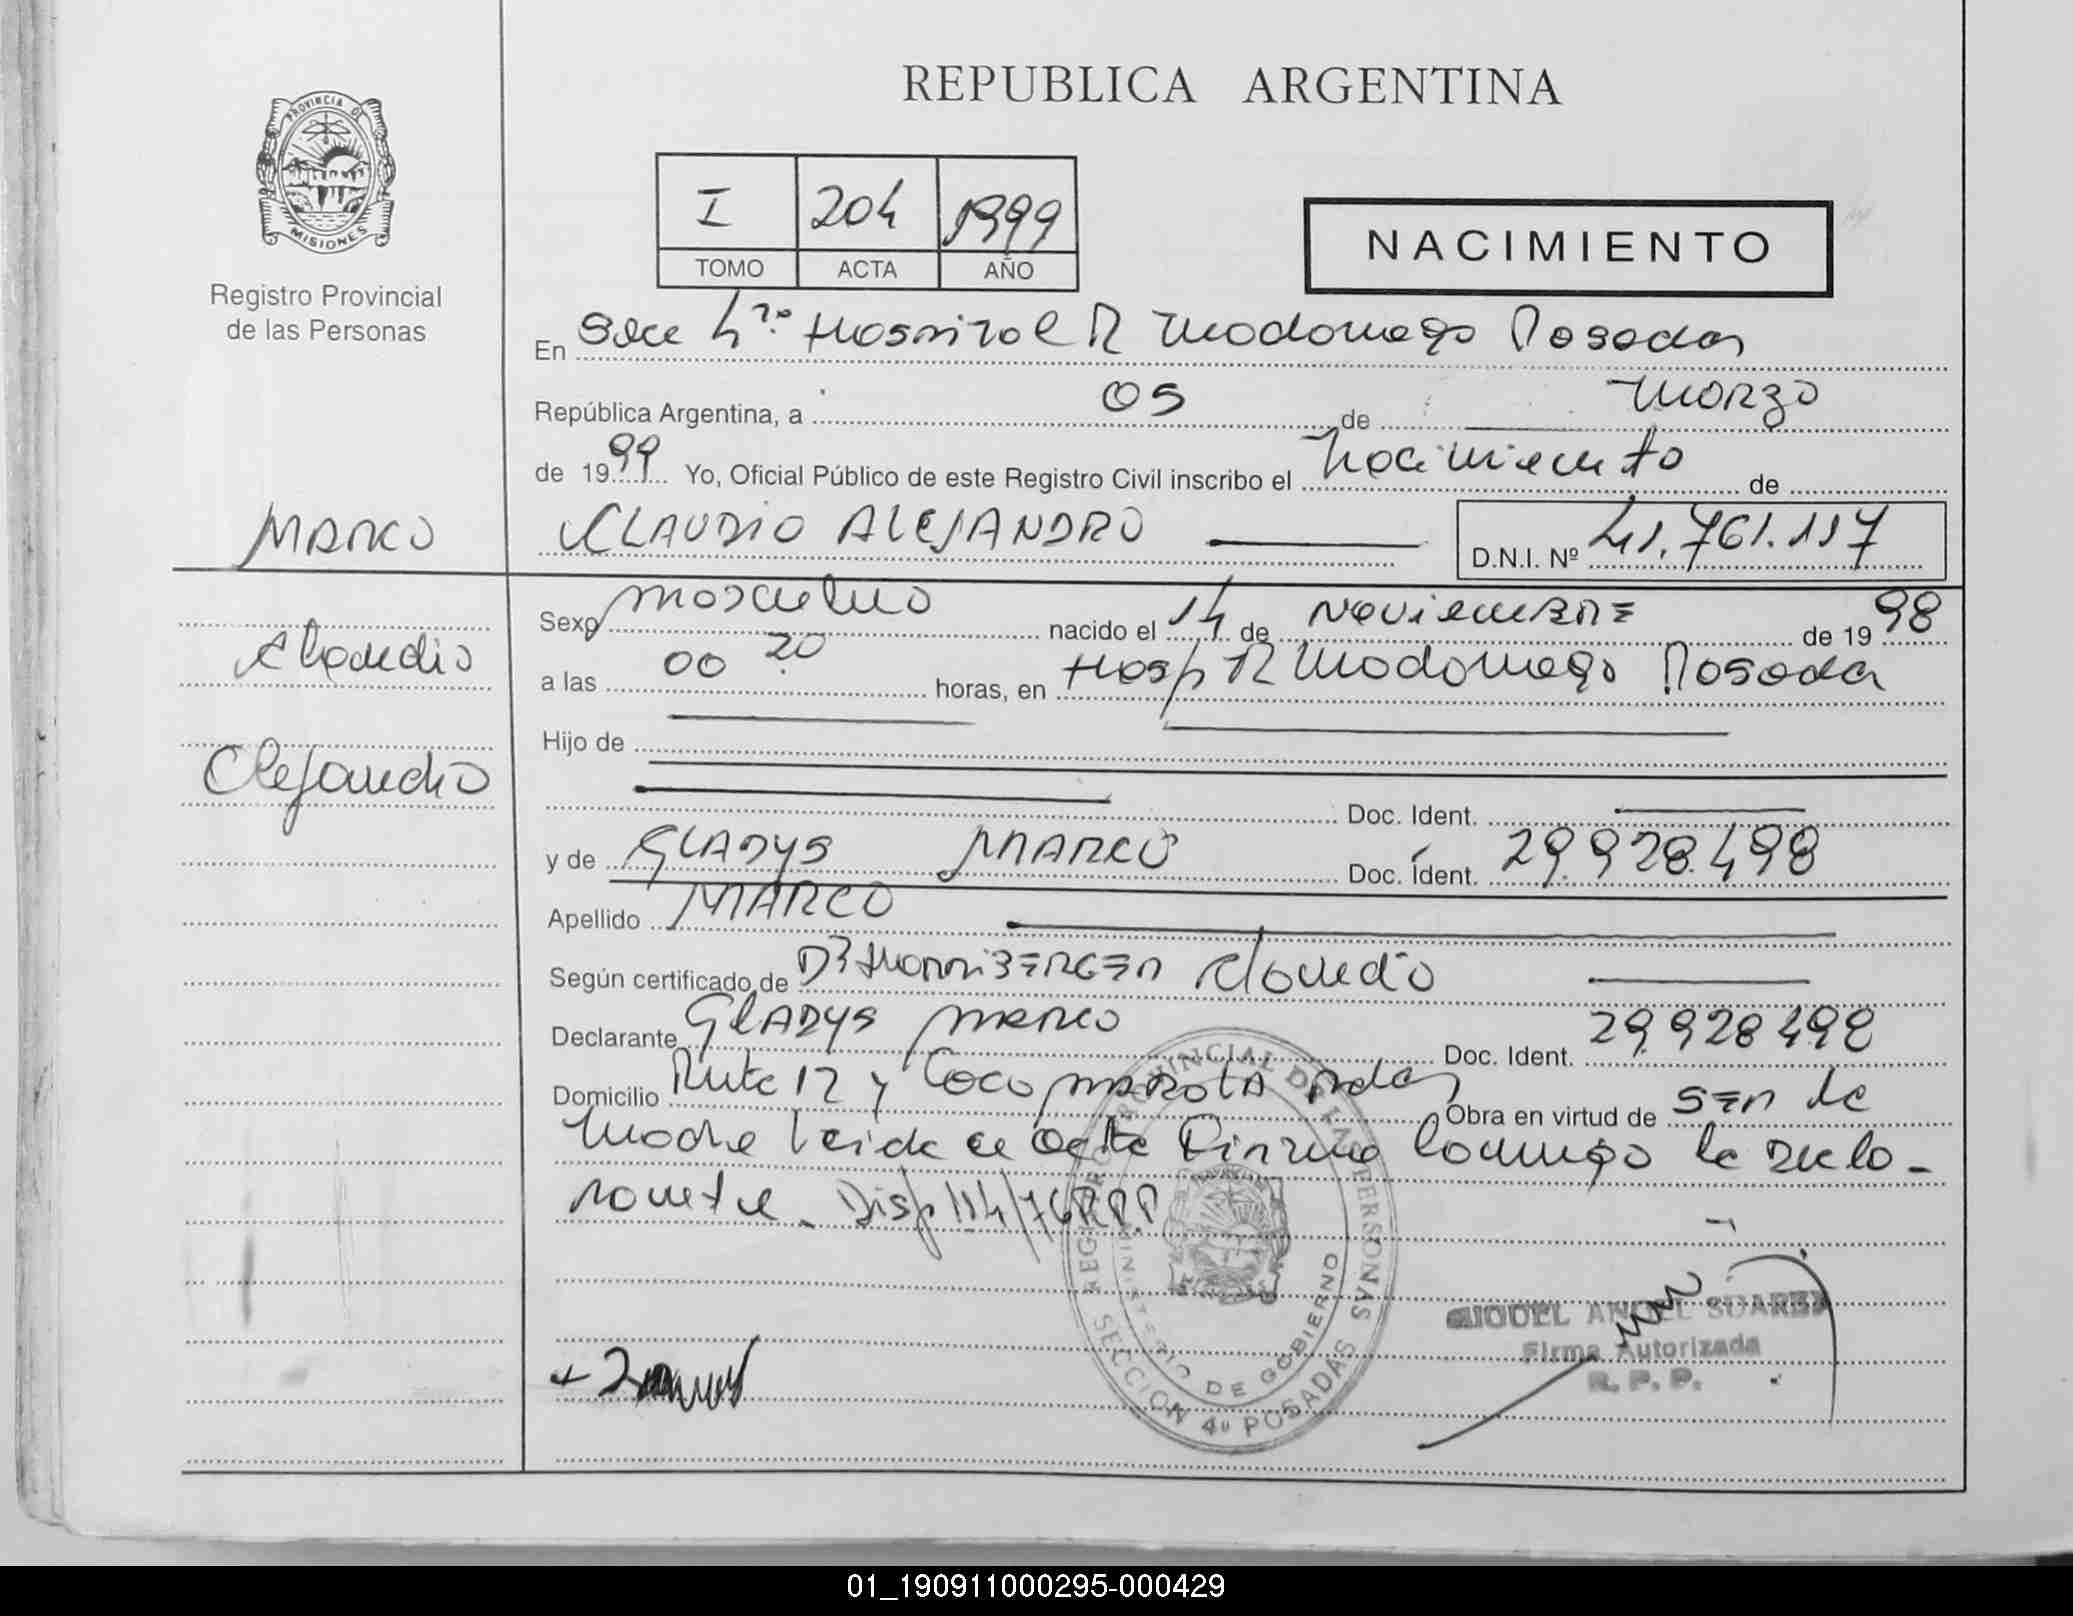 REPUBLICA ARGENTINA
PROVINCIA DE
MISIONES
Registro Provincial
de las Personas
I 204 1999
TOMO ACTA AÑO
NACIMIENTO
En Secc 4ta Hospital R Madariaga Posadas
República Argentina, a 05 de Marzo
de 1999 Yo, Oficial Público de este Registro Civil inscribo el Nacimiento de
MARCO
CLAUDIO ALEJANDRO D.N.I. Nº 41.761.117
Claudio
Alejandro
Sexo masculino nacido el 14 de Noviembre de 1998
a las 00 20 horas, en Hosp R Madariaga Posadas
Hijo de
Doc. Ident.
y de GLADYS MARCO Doc. Ident. 29.928.498
Apellido MARCO
Según certificado de Claudio
Declarante GLADYS MARCO Doc. Ident. 29.928 498
Domicilio Ruta 12 y Coco MAROLA Pdas Obra en virtud de ser la
Madre Leida el acta firma conmigo la decla-
rante. Disp 114/76 R.P.P
REGISTRO PROVINCIAL DE LAS PERSONAS
MINISTERIO DE GOBIERNO
SECCION 4º POSADAS
MIGUEL ANGEL SUAREZ
Firma Autorizada
R. P. P.
01_190911000295-000429